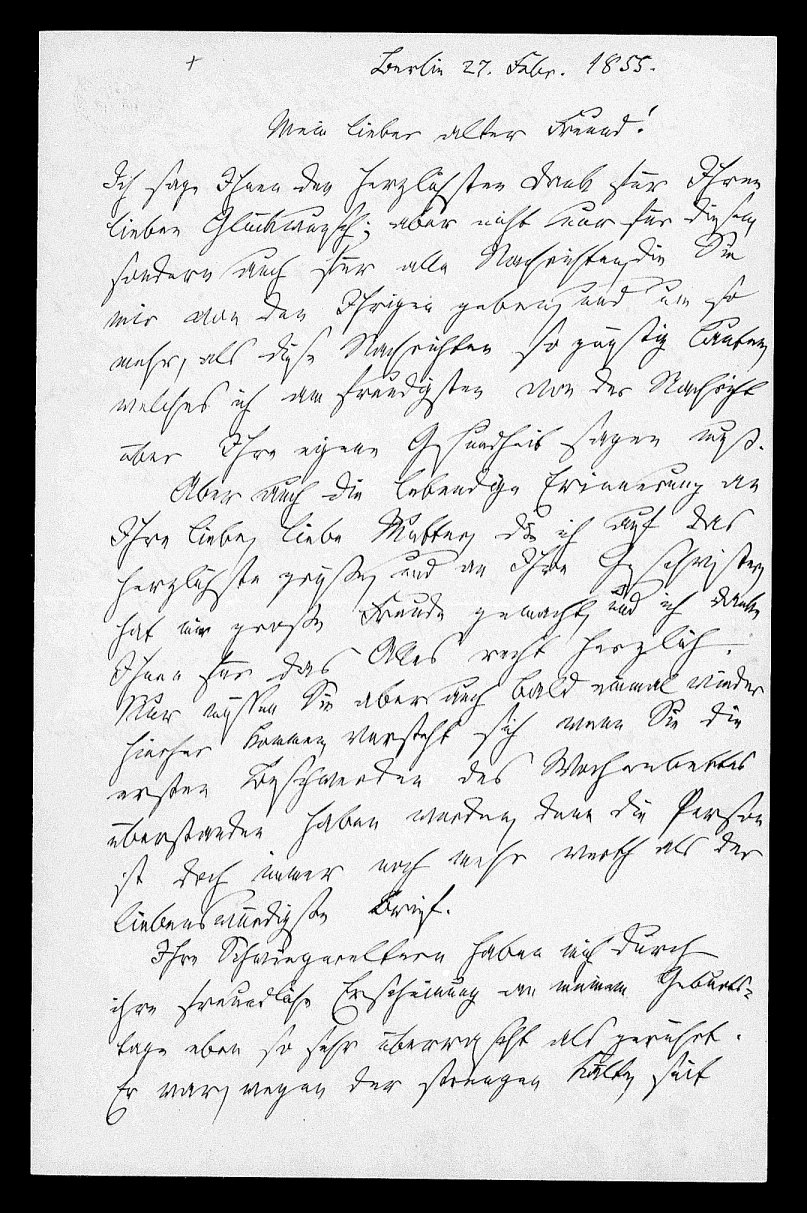 Berlin 27. Febr. 1855.
Mein lieber alter Freund!
Ich sage Ihnen den herzlichsten Dank für Ihren
lieben Glückwunsch; aber nicht nur für diesen,
sondern auch für alle Nachrichten, die Sie
mir von den Ihrigen geben, und um so
mehr, als diese Nachrichten so günstig lauten,
welches ich am freudigsten von der Nachricht
über Ihre eigene Gesundheit sagen muß.
Aber auch die lebendige Erinnerung an
Ihre liebe, liebe Mutter, die ich auf das
herzlichste grüße, und an Ihre Geschwister,
hat mir große Freude gemacht, und ich danke
Ihnen für das Alles recht herzlich.
Nur müssen Sie aber auch bald einmal wieder
hierher kommen, versteht sich wenn Sie die
ersten Beschwerden des Wochenbettes
überstanden haben werden, denn die Person
ist doch immer noch mehr werth als der
liebenswürdigste Brief.
Ihre Schwiegereltern haben mich durch
ihre freundliche Erscheinung an meinem Geburts-
tage eben so sehr überrascht als gerührt.
Er war, wegen der strengen Kälte, seit